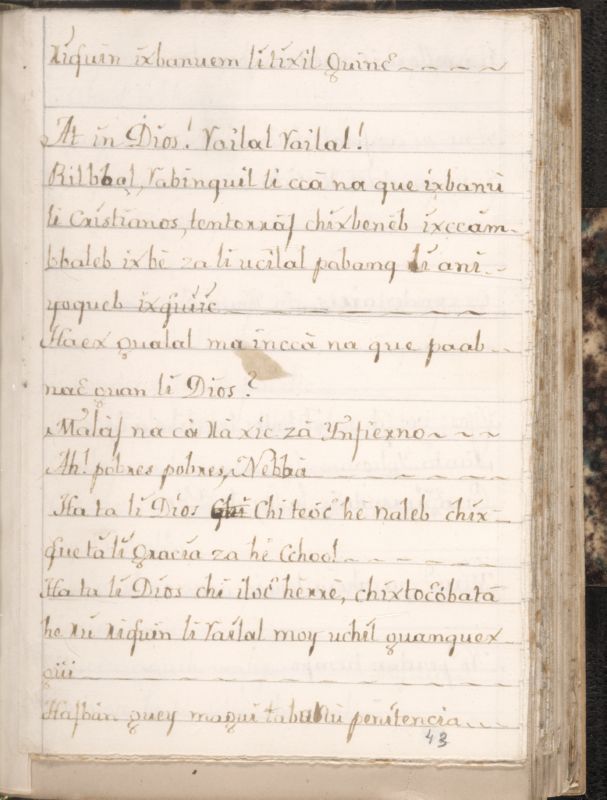 xiquin ixbanuem li tixil quinc
At in Dios! Vailal Vailal!
Rilbbal, Vabinquil li ccà na que ixbanú
li Cristianos, tentorràs chixbenèb ixccàm-
bbaleb ixbè za li ucilal pabanq li ani
yoqueb ixquic
Haex qualal ma inccà na que paab
nac quan li Dios?
Malàs na cà Nà xic zà Ynfierno
Ah! pobres pobres, Nebbà
Ha ta li Dios Chi teoc he naleb chix
que tà li gracia za hè Cchool
Ha ta li Dios chi iloc hèrrè, chixtocòbatà
he rú xiquin li Vailal moy uchil quanquex
qui
Hasbàn quey maqui tabanù penitencia
43